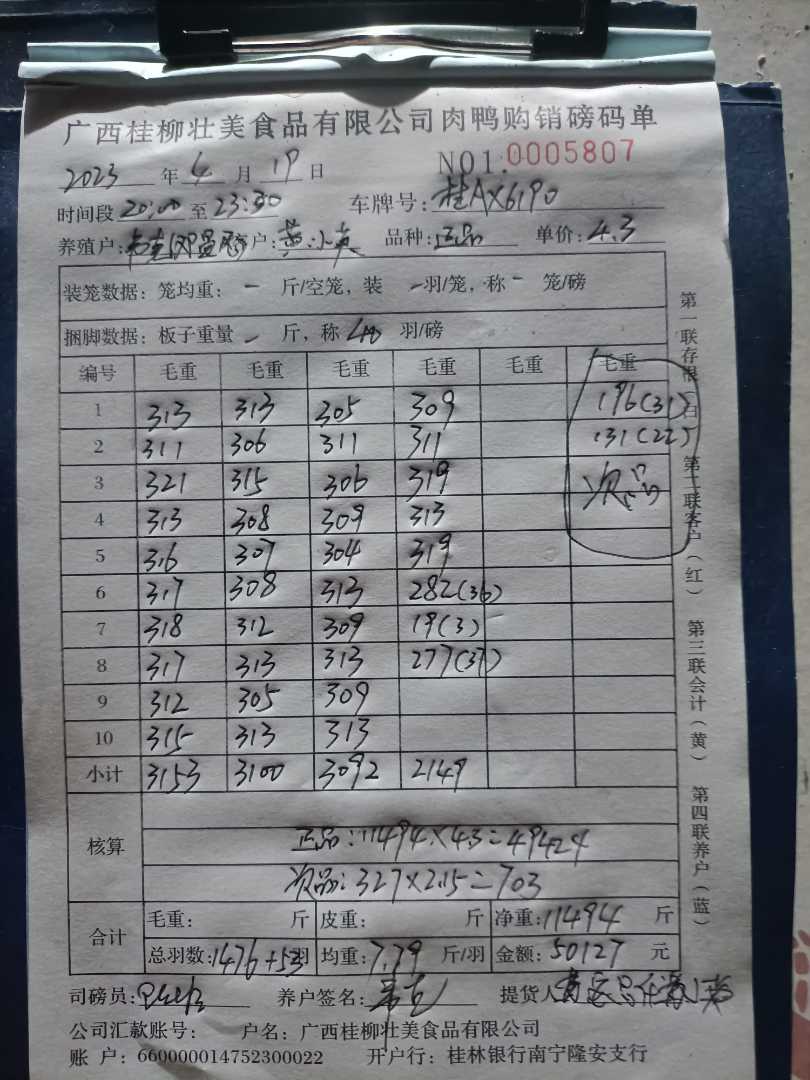 广西桂柳壮美食品有限公司肉鸭购销磅码单
2023 年 4 月 19 日 NO1. 0005807
时间段 20:00 至 23:30 车牌号: 桂AX6190
养殖户: 户: 黄小英 品种: 正品 单价: 4.3
装笼数据: 笼均重: - 斤/空笼, 装 - 羽/笼, 称 - 笼/磅
捆脚数据: 板子重量 - 斤, 称 40 羽/磅
编号 毛重 毛重 毛重 毛重 毛重 毛重
1 313 313 305 309 196(31)
2 311 306 311 311 131(22)
3 321 315 306 319 次品
4 313 308 309 313
5 316 307 304 319
6 317 308 313 282(36)
7 318 312 309 19(3)
8 317 313 313 277(37)
9 312 305 309
10 315 313 313
小计 3153 3100 3092 2149
核算
正品:11494×4.3=49424
次品:327×2.15=703
合计
毛重: 斤 皮重: 斤 净重: 11494 斤
总羽数: 1476+53 羽 均重: 7.79 斤/羽 金额: 50127 元
司磅员: 养户签名: 提货人
公司汇款账号: 户名: 广西桂柳壮美食品有限公司
账 户: 660000014752300022 开户行: 桂林银行南宁隆安支行
第一联存根(白) 第二联客户(红) 第三联会计(黄) 第四联养户(蓝)